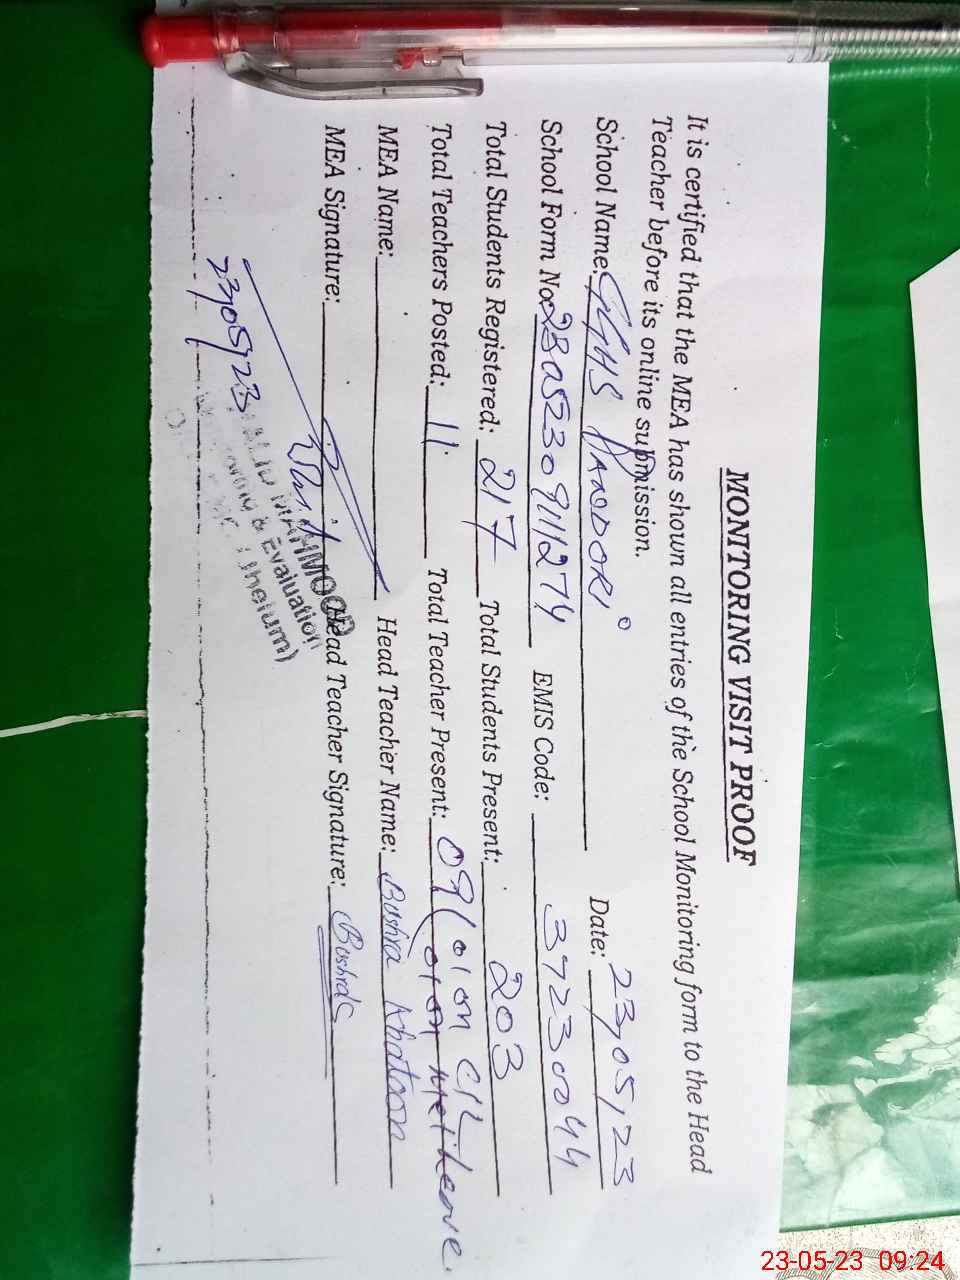 MONITORING VISIT PROOF
It is certified that the MEA has shown all entries of the School Monitoring form to the Head
Teacher before its online submission.
School Name: GGHS PANDORI Date: 23/05/23
School Form No. EMIS Code: 37230044
Total Students Registered: 217 Total Students Present: 203
Total Teachers Posted: 11 Total Teacher Present: 09 (01 on C/L
01 on Leave.
MEA Name: Head Teacher Name: Bushra Khatoon
MEA Signature: Head Teacher Signature: Bushra
23/05/23
MAHMOOD
& Evaluation
Jhelum)
23-05-23 09:24